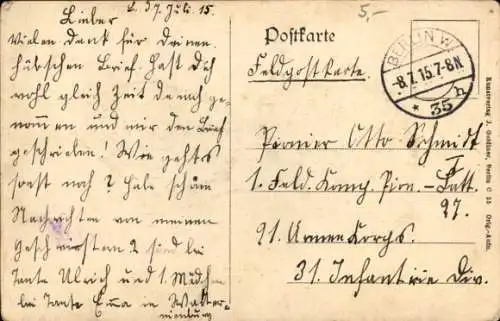 d. 7. Juli 15.
Lieber
Vielen Dank für Deinen
hübschen Brief. Hast Dich
wohl gleich Zeit danach ge-
nommen und mir den Brief
geschrieben! Wie gehts
sonst noch? Habe schöne
Nachrichten von meinen
Geschwistern 2 sind bei
Tante Ulrich und 1 Mädchen
bei Tante Emma in
5,-
Postkarte
Feldpostkarte.
BERLIN W.
-8.7.15.7-8N.
* 35 h
Pionier Otto Schmidt
1. Feld. Komp. Pion.-Batt. I
27.
91. Armee Korps.
31. Infantrie Div.
Kunstverlag J. Goldiner, Berlin C 25 Orig.-Aufn.